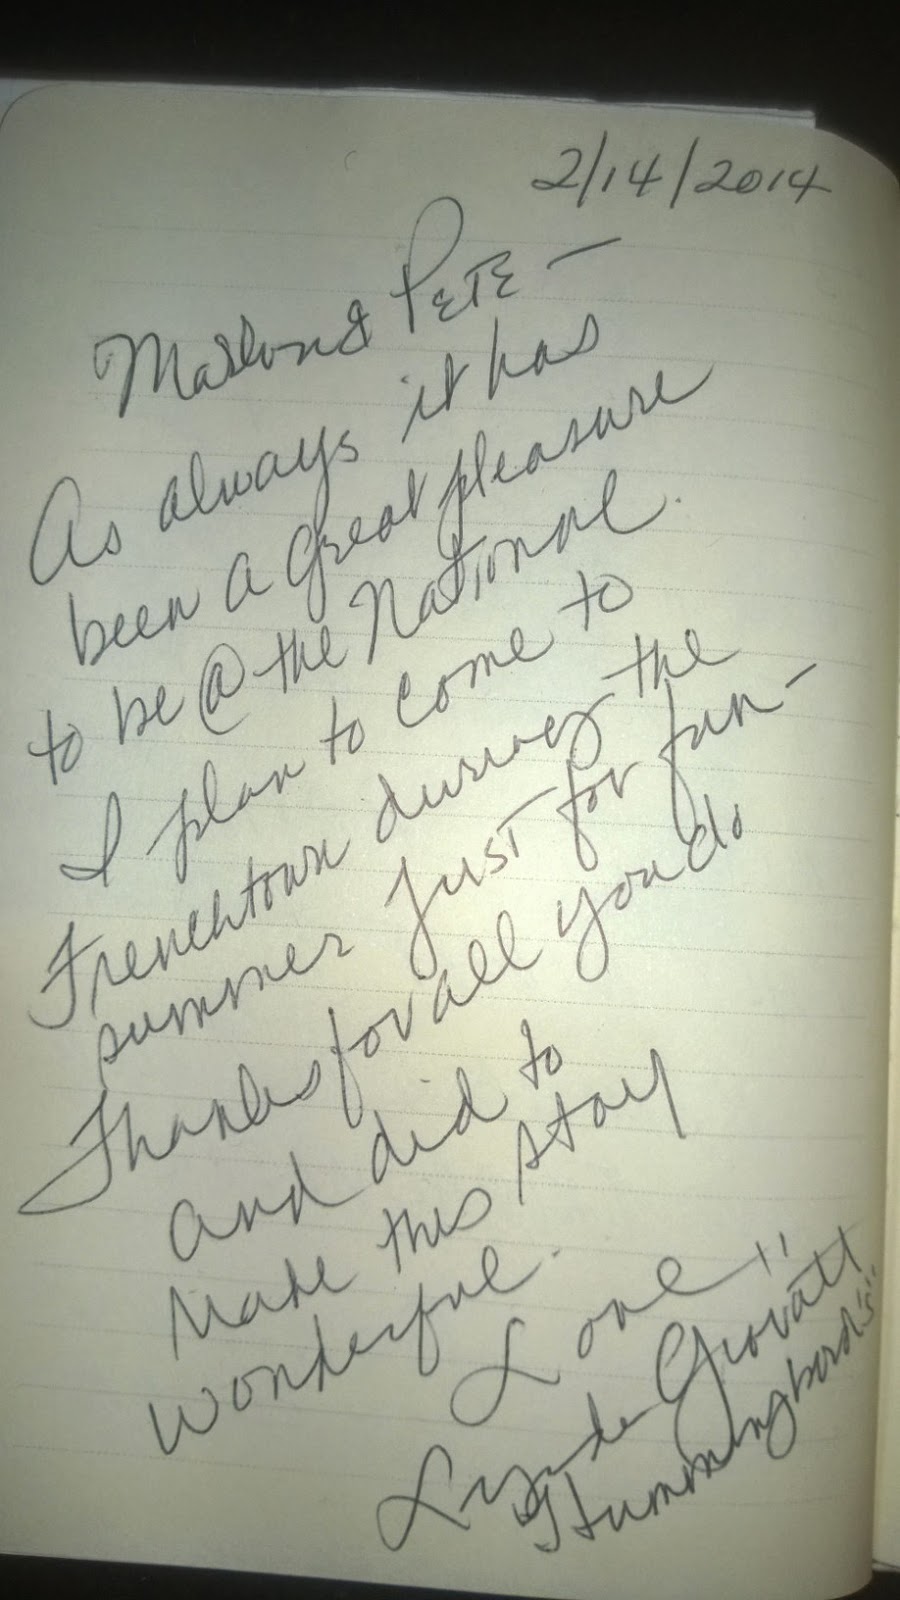 2/14/2014
& PETE —
As always it has
been a great pleasure
to be @ the National.
I plan to come to
Frenchtown during the
summer just for fun –
Thanks for all you do
and did to
Make this stay
wonderful.
Love!!
Lynda Grovatt
"Hummingbird's"